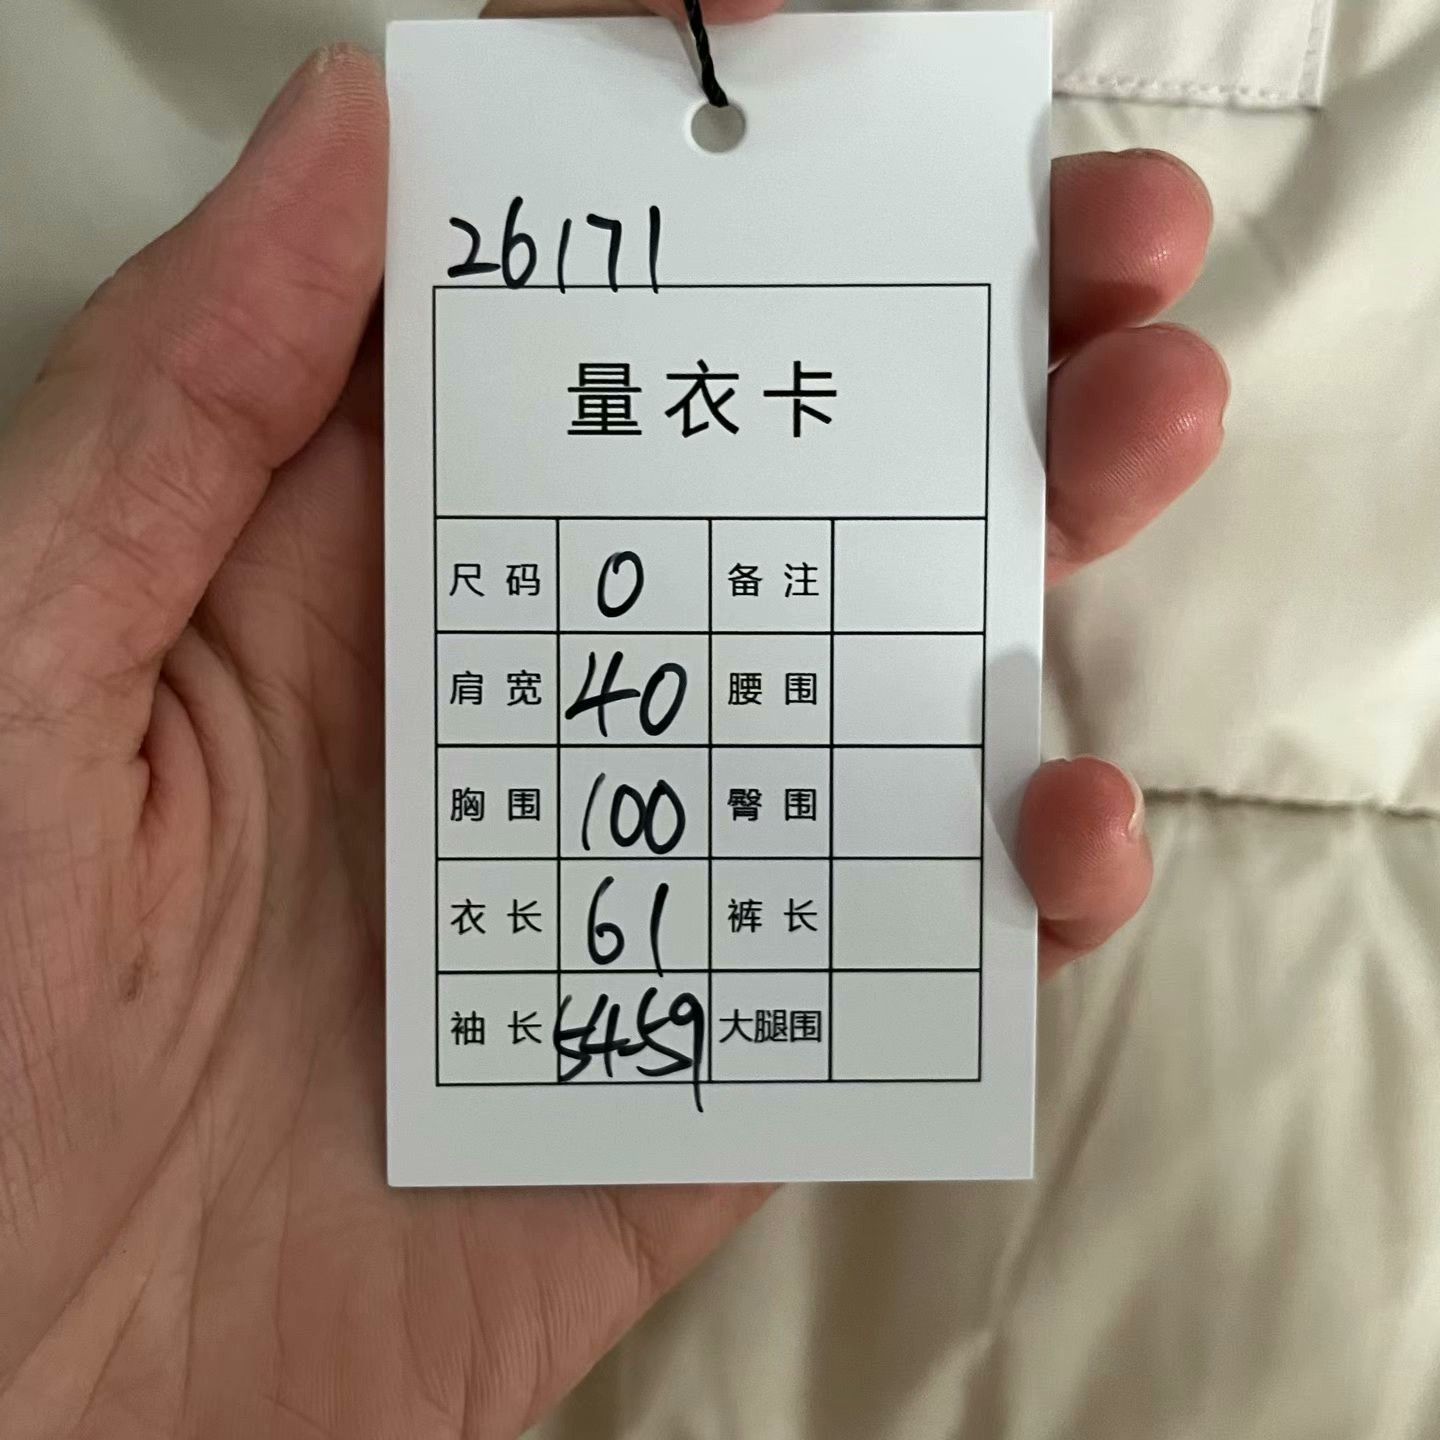 26171
量衣卡
尺码 0 备注
肩宽 40 腰围
胸围 100 臀围
衣长 61 裤长
袖长 54-59 大腿围